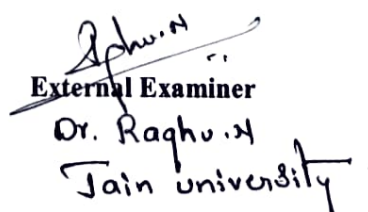 Raghu.N
External Examiner
Dr. Raghu.N
Jain University